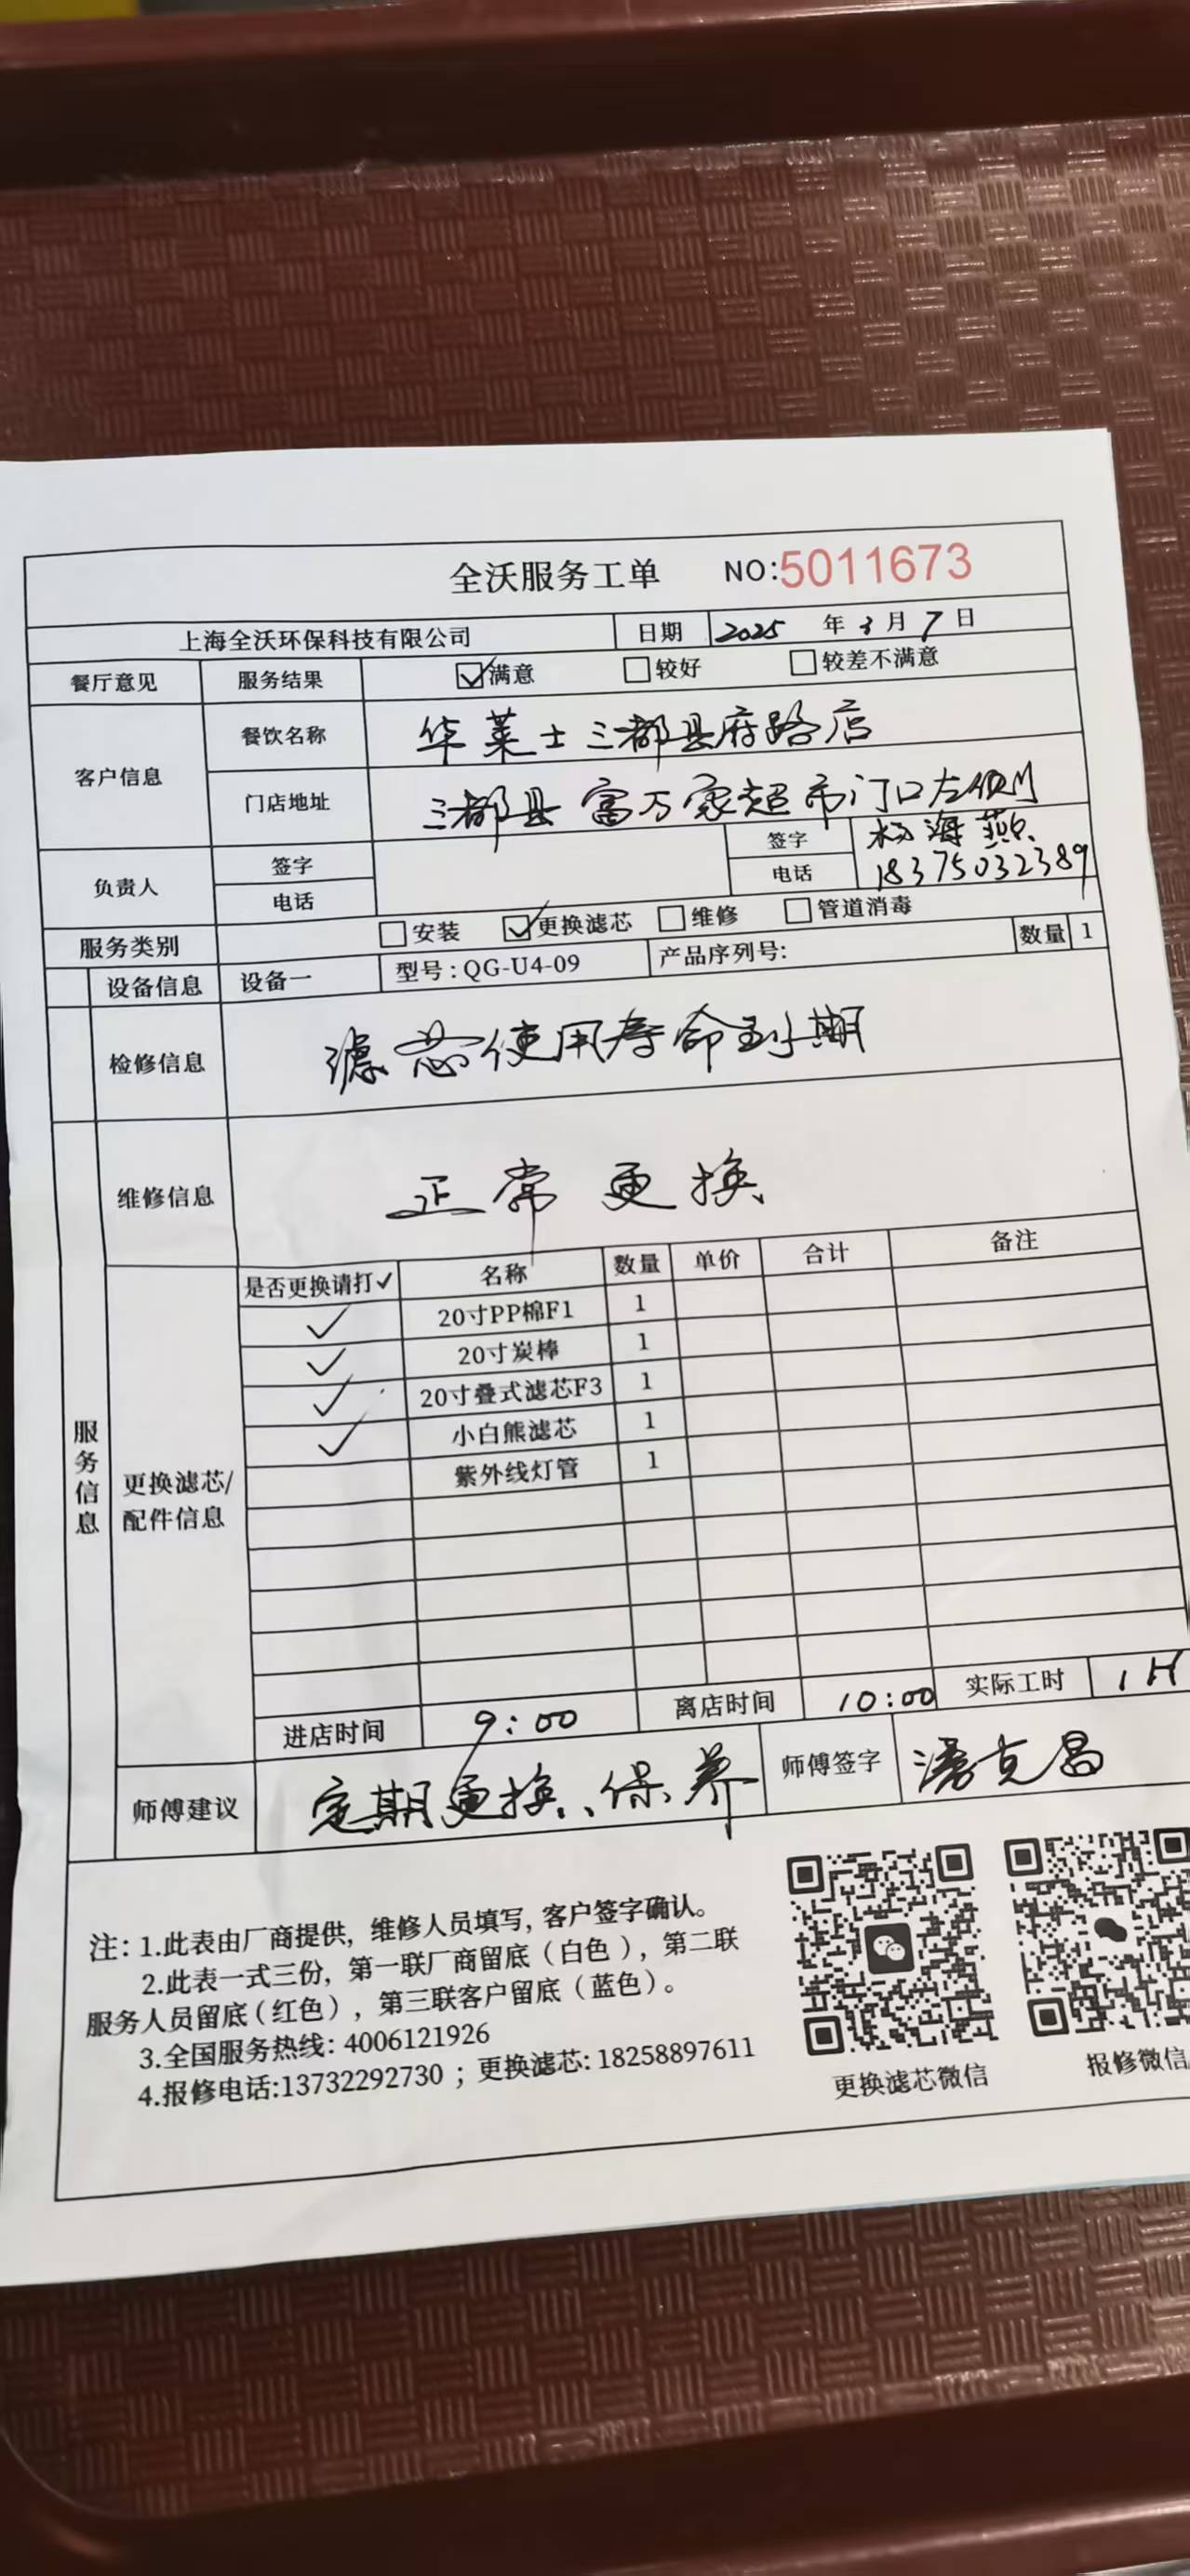 全沃服务工单 NO:5011673
上海全沃环保科技有限公司 日期 2025 年 3 月 7 日
餐厅意见 服务结果 ☑满意 □较好 □较差不满意
客户信息 餐饮名称 华莱士三都县府路店
门店地址 三都县富万家超市门口左侧
负责人 签字 签字 杨海燕
电话 电话 18375032389
服务类别 □安装 ☑更换滤芯 □维修 □管道消毒
设备信息 设备一 型号:QG-U4-09 产品序列号: 数量 1
检修信息 滤芯使用寿命到期
维修信息 正常更换
服务信息
更换滤芯/
配件信息
是否更换请打✓ 名称 数量 单价 合计 备注
✓ 20寸PP棉F1 1
✓ 20寸炭棒 1
✓ 20寸叠式滤芯F3 1
✓ 小白熊滤芯 1
紫外线灯管 1
进店时间 9:00 离店时间 10:00 实际工时 1H
师傅建议 定期更换、保养 师傅签字 潘克昌
注: 1.此表由厂商提供, 维修人员填写, 客户签字确认。
2.此表一式三份, 第一联厂商留底(白色), 第二联
服务人员留底(红色), 第三联客户留底(蓝色)。
3.全国服务热线: 4006121926
4.报修电话:13732292730 ; 更换滤芯: 18258897611
更换滤芯微信 报修微信